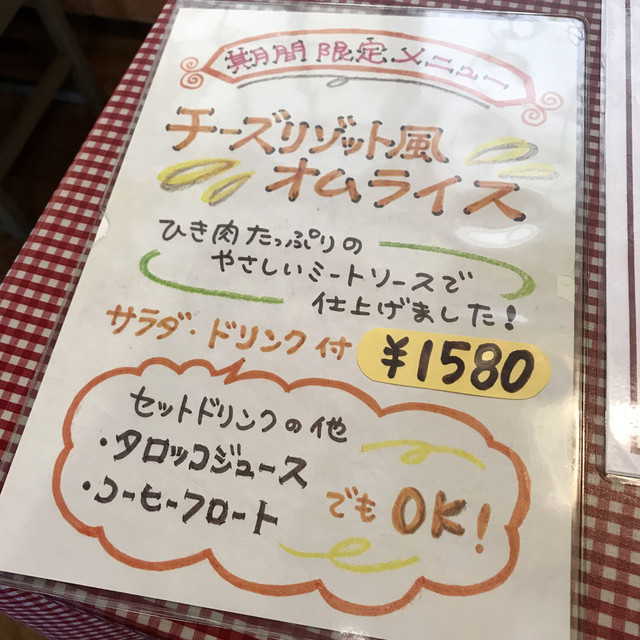 期間限定メニュー
チーズリゾット風
オムライス
ひき肉たっぷりの
やさしいミートソースで
仕上げました!
サラダ・ドリンク付
¥1580
セットドリンクの他
・タロッコジュース
・コーヒーフロート
でもOK!